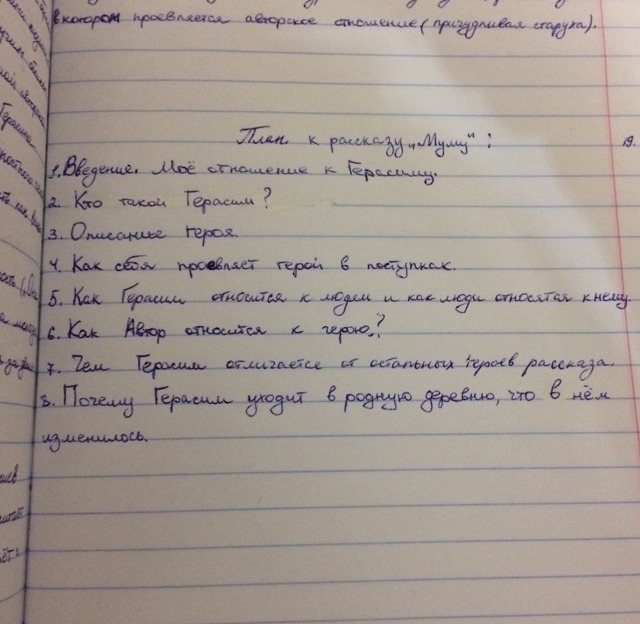 в котором проевляется авторское отношение (причудливая старуха).
План к рассказу „Муму“:
19.
1. Введение. Моё отношение к Герасиму.
2. Кто такой Герасим?
3. Описание героя.
4. Как себя проевляет герой в поступках.
5. Как Герасим относится к людем и как люди относятся к нему
6. Как Автор относится к герою.?
7. Чем Герасим отличается от остальных героев рассказа.
8. Почему Герасим уходит в родную деревню, что в нём
изменилось.